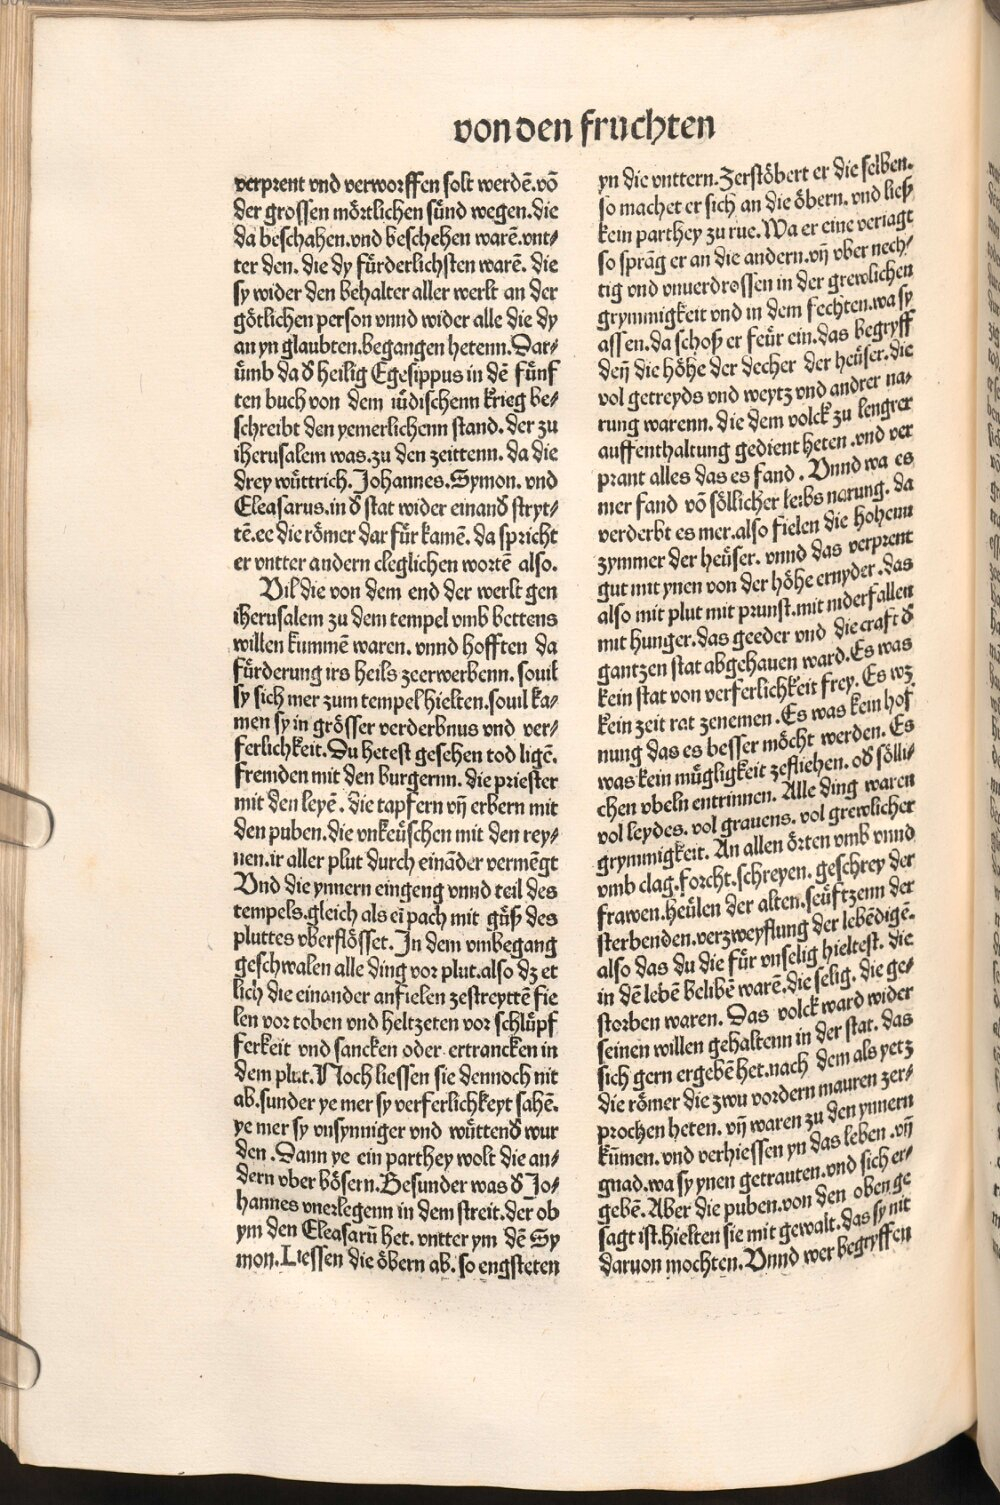 von den fruchten
verprent vnd verworffen solt werdē.vō
der grossen mörtlichen sünd wegen.die
da beschahen.vnd beschehen warē.vnt⸗
ter den. die dy fürderlichsten warē. die
sy wider den behalter aller werlt an der
götlichen person vnnd wider alle die dy
an yn glaubten.begangen hetenn.Dar⸗
ümb da đ heilig Egesippus in dē fünf
ten buch von dem iüdischenn krieg be⸗
schreibt den yemerlichenn stand. der zu
iherusalem was.zu den zeittenn. da die
drey wüttrich.Johannes.Symon. vnd
Eleasarus.in đ stat wider einanđ stryt⸗
tē.ee die römer dar für kamē. da spricht
er vntter andern cleglichen wortē also.
Vil die von dem end der werlt gen
iherusalem zu dem tempel vmb bettens
willen kummē waren. vnnd hofften da
fürderung irs heils zeerwerbenn. souil
sy sich mer zum tempel hielten.souil ka⸗
men sy in grösser verderbnus vnd ver⸗
ferlichkeit.Du hetest gesehen tod ligē.
fremden mit den burgernn. die priester
mit den leyē. die tapfern vn̄ erbern mit
den puben.die vnkeüschen mit den rey⸗
nen.ir aller plut durch eināder vermēgt
Vnd die ynnern eingeng vnnd teil des
tempels.gleich als ei pach mit güß des
pluttes vberflösset. In dem vmbegang
geschwalen alle ding vor plut.also dz et
lich die einander anfielen zestreyttē fie
len vor toben vnd heltzeten vor schlüpf
ferkeit vnd sancken oder ertrancken in
dem plut.Noch liessen sie dennoch nit
ab.sunder ye mer sy verferlichkeyt sahē.
ye mer sy vnsynniger vnd wüttenđ wur
den .Dann ye ein parthey wolt die an⸗
dern vber bösern.Besunder was đ Jo⸗
hannes vnerlegenn in dem streit.der ob
ym den Eleasarū het. vntter ym dē Sy
mon.Liessen die öbern ab. so engsteten
yn die vnttern.Zerstöbert er die selben.
so machet er sich an die öbern. vnd ließ
kein parthey zu rue.Wa er eine veriagt
so sprāg er an die andern.vn̄ vber nech⸗
tig vnd vnuerdrossen in der grewlichen
grymmigkeit vnd in dem fechten.wa sy
assen.da schoß er feür ein.das begryff
den̄ die höhe der decher der heüser.die
vol getreyds vnd weytz vnd andrer na⸗
rung warenn. die dem volck zu lengrer
auffenthaltung gedient heten .vnd ver
prant alles das es fand . Vnnd wa es
mer fand vō söllicher leibs narung. da
verderbt es mer.also fielen die hohenn
zymmer der heüser. vnnd das verprent
gut mit ynen von der höhe ernyder .das
also mit plut mit prunst.mit niderfallen
mit hunger.das geeder vnd die craft đ
gantzen stat abgehauen ward.Es was
kein stat von verferlichkeit frey. Es wz
kein zeit rat zenemen .Es was kein hof
nung das es besser möcht werden. Es
was kein mügligkeit zefliehen. ođ sölli⸗
chen vbeln entrinnen. Alle ding waren
vol leydes. vol grauens. vol grewlicher
grymmigkeit. An allen örten vmb vnnd
vmb clag.forcht.schreyen. geschrey der
frawen.heülen der alten.seüftzenn der
sterbenden.verzweyflung der lebēdigē.
also das du die für vnselig hieltest. die
in dē lebē belibē warē.die selig. die ge⸗
storben waren. Das volck ward wider
seinen willen gehaltenn in der stat. das
sich gern ergebē het.nach dem als yetz
die römer die zwu vordern mauren zer⸗
prochen heten. vn̄ waren zu den ynnern
kümen. vnd verhiessen yn das leben .vn̄
gnad.wa sy ynen getrauten.vnd sich er⸗
gebē. Aber die puben.von den oben ge
sagt ist.hielten sie mit gewalt.das sy nit
daruon mochten. Vnnd wer begryffen